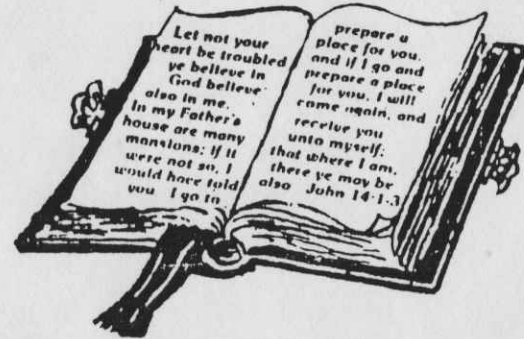 Let not your
heart be troubled
ye believe in
God believe
also in me.
In my Father's
house are many
mansions: if it
were not so, I
would have told
you. I go to
prepare a
place for you.
and if I go and
prepare a place
for you, I will
come again, and
receive you
unto myself;
that where I am,
there ye may be
also John 14:1-3